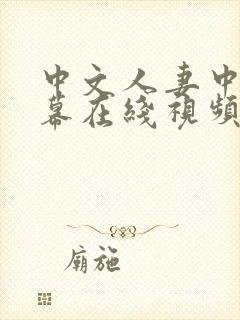 中文人妻中
幕在綫視頻
廟施